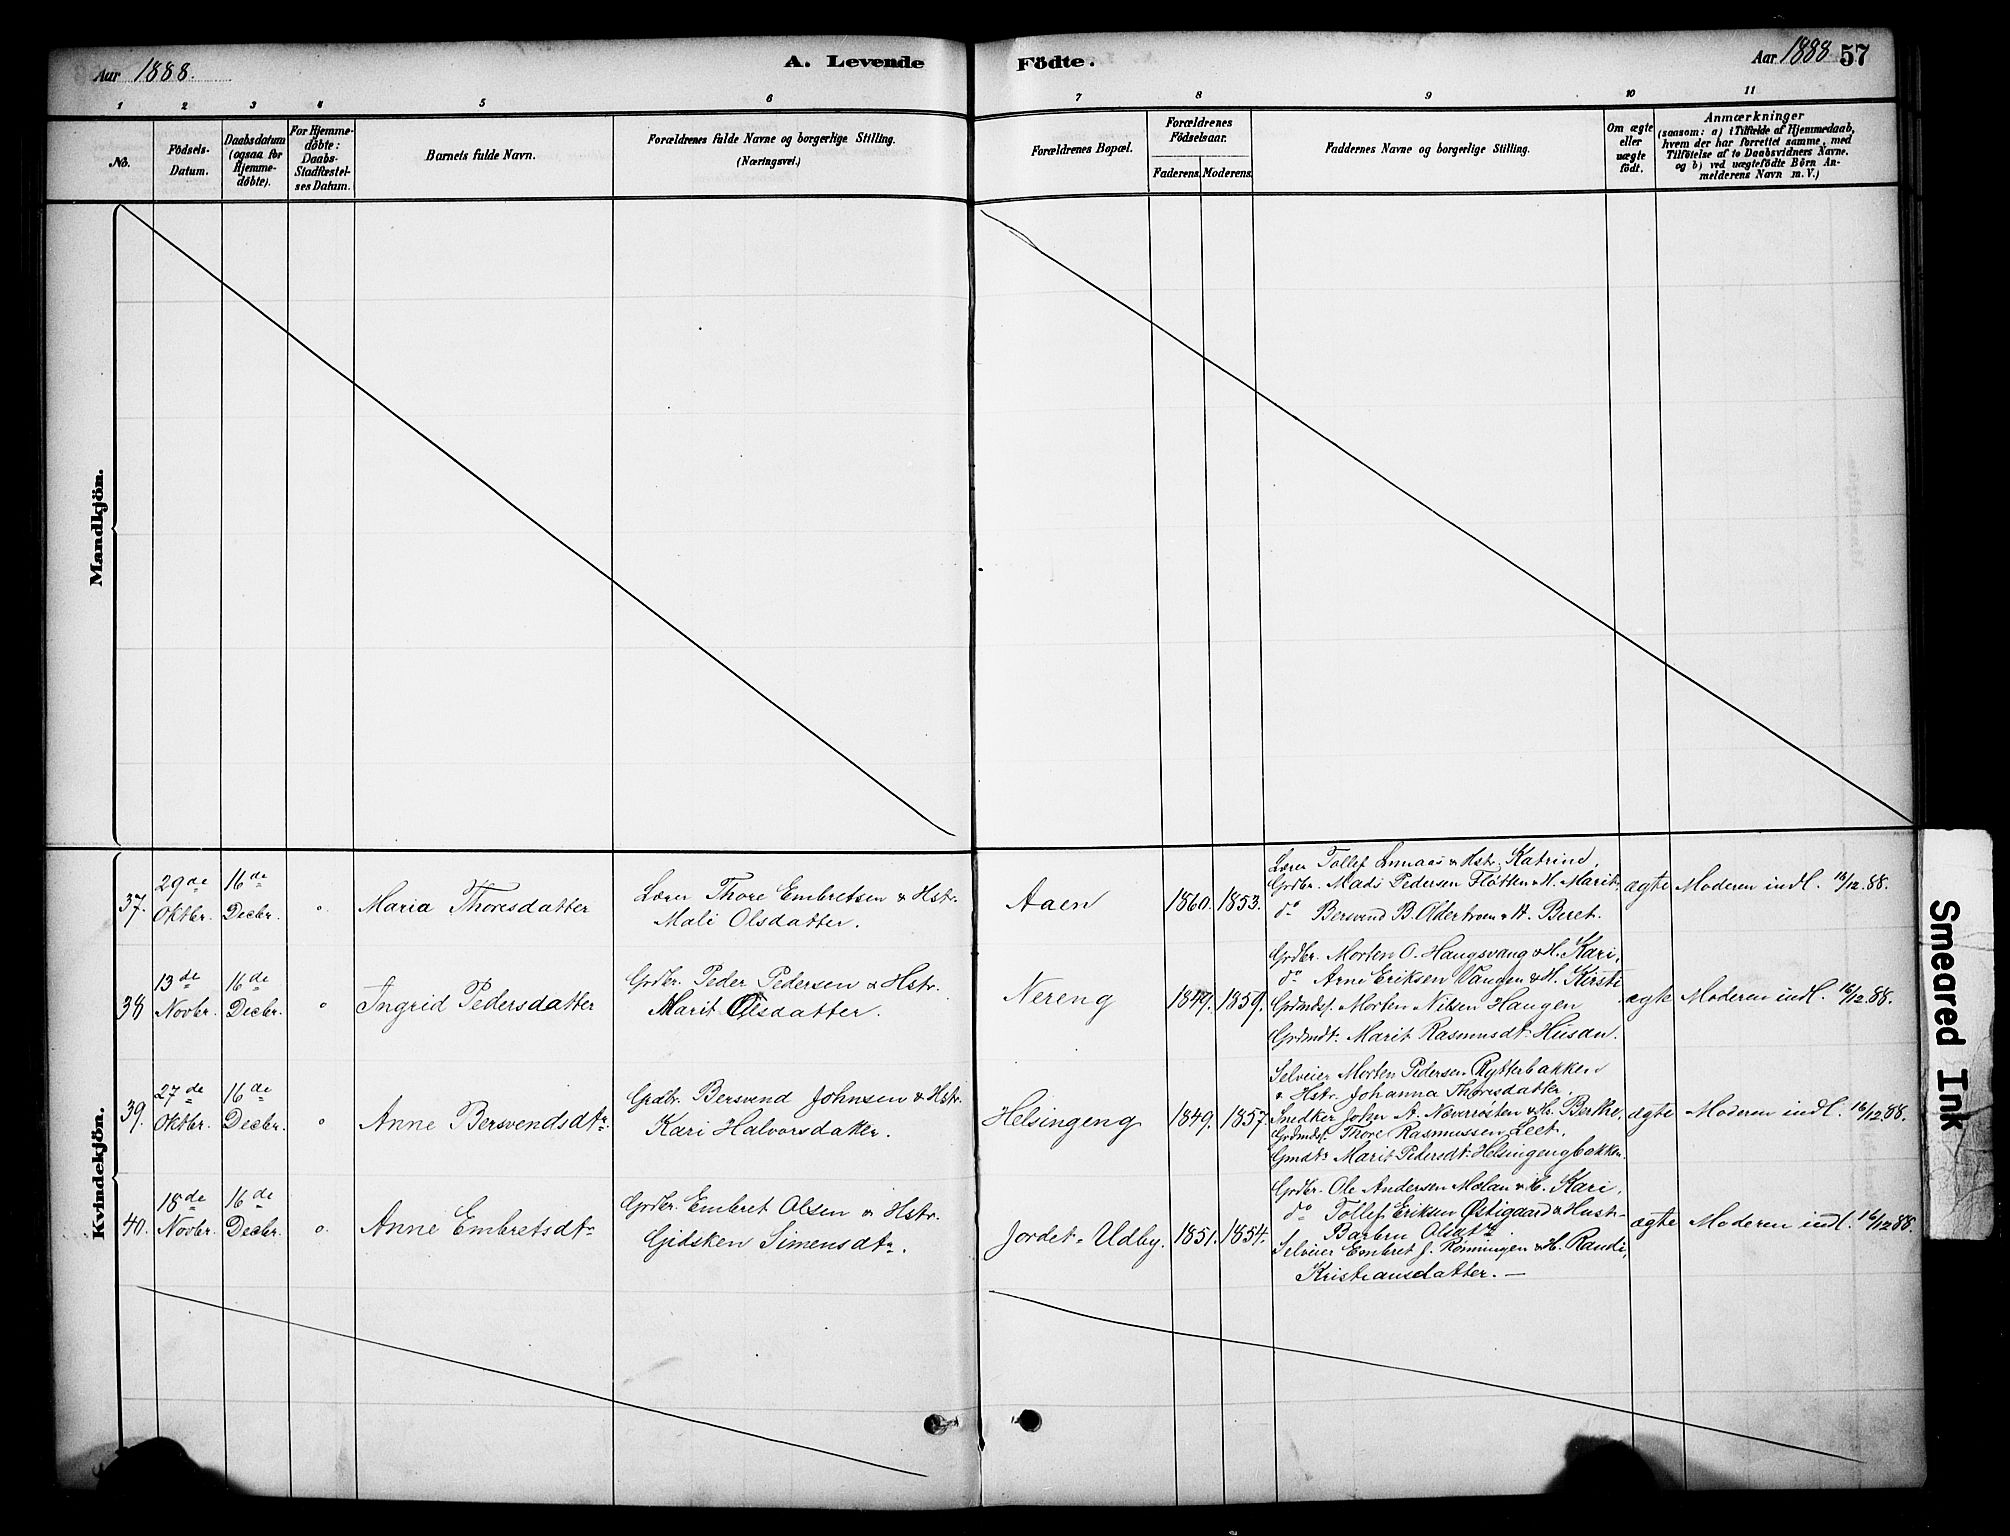 Aar 1888.
A. Levende
Födte.
Aar 1888 57
1 2 3 4 5 6 7 8 9 10 11
No.
Födsels-
Datum.
Daabsdatum
(ogsaa for
Hjemme-
döbte).
For Hjemme-
döbte:
Daabs-
Stadfæstel-
ses Datum.
Barnets fulde Navn.
Forældrenes fulde Navne og borgerlige Stilling.
(Næringsvei.)
Forældrenes Bopæl.
Forældrenes
Födselsaar.
Faderens. Moderens.
Faddernes Navne og borgerlige Stilling.
Om ægte
eller
uægte
født.
Anmærkninger
(saasom: a) i Tilfælde af Hjemmedaab,
hvem der har forrettet samme, med
Tilføielse af to Daabsvidners Navne.
og b) ved uægtefödte Börn An-
melderens Navn m. V.)
Mandkjön.
Kvindekjön.
37.
29de
Oktbr.
16de
Decbr.
Maria Thoresdatter
Lærer Thore Embretsen & Hstr.
Mali Olsdatter.
Aaen
1860. 1853.
Lærer Tollef & Hstr. Katrine,
Grdbr. Mads Pedersen Fløtten & H. Marit,
do Bersvend B. & H. Beret.
ægte
Moderen indl. 16/12.88.
38
13de
Novbr.
16de
Decbr.
Ingrid Pedersdatter
Grdbr. Peder Pedersen & Hstr.
Marit Olsdatter.
Nereng
1849. 1859.
Grdbr. Morten O. Haugsvang & H. Kari,
do Arne Eriksen Vangen & H. Kirsti
Grdmdsf. Morten Nilsen Haugen
Grdmdt. Marit Rasmusdt. Husan.
ægte
Moderen indl. 16/12.88.
39.
27de
Oktbr.
16de
Decbr.
Anne Bersvendsdtr
Grdbr. Bersvend Johnsen & Hstr.
Kari Halvorsdatter.
Helsingeng
1849. 1857.
Selveier Morten Pedersen Rytterbakken
& Hstr. Johanna Thoresdatter
Snedker John A. & H. Berthe,
Grdmdsf. Thore Rasmussen Leet,
Gmdtr Marit Pedersdt. Helsingengbakken.
ægte
Moderen indl. 16/12.88.
40.
18de
Novbr.
16de
Decbr.
Anne Embretsdtr
Grdbr. Embret Olsen & Hstr.
Gidsken Simensdtr.
Jordet. Udby.
1851. 1854.
Grdbr. Ole Andersen & H. Kari,
do Tollef Eriksen Østigaard & Hustr.
Barbru Olsdtr
Selveier Embret J. Rønningen & H. Randi
Kristiansdatter. —
ægte
Moderen indl. 16/12.88.
Smeared Ink